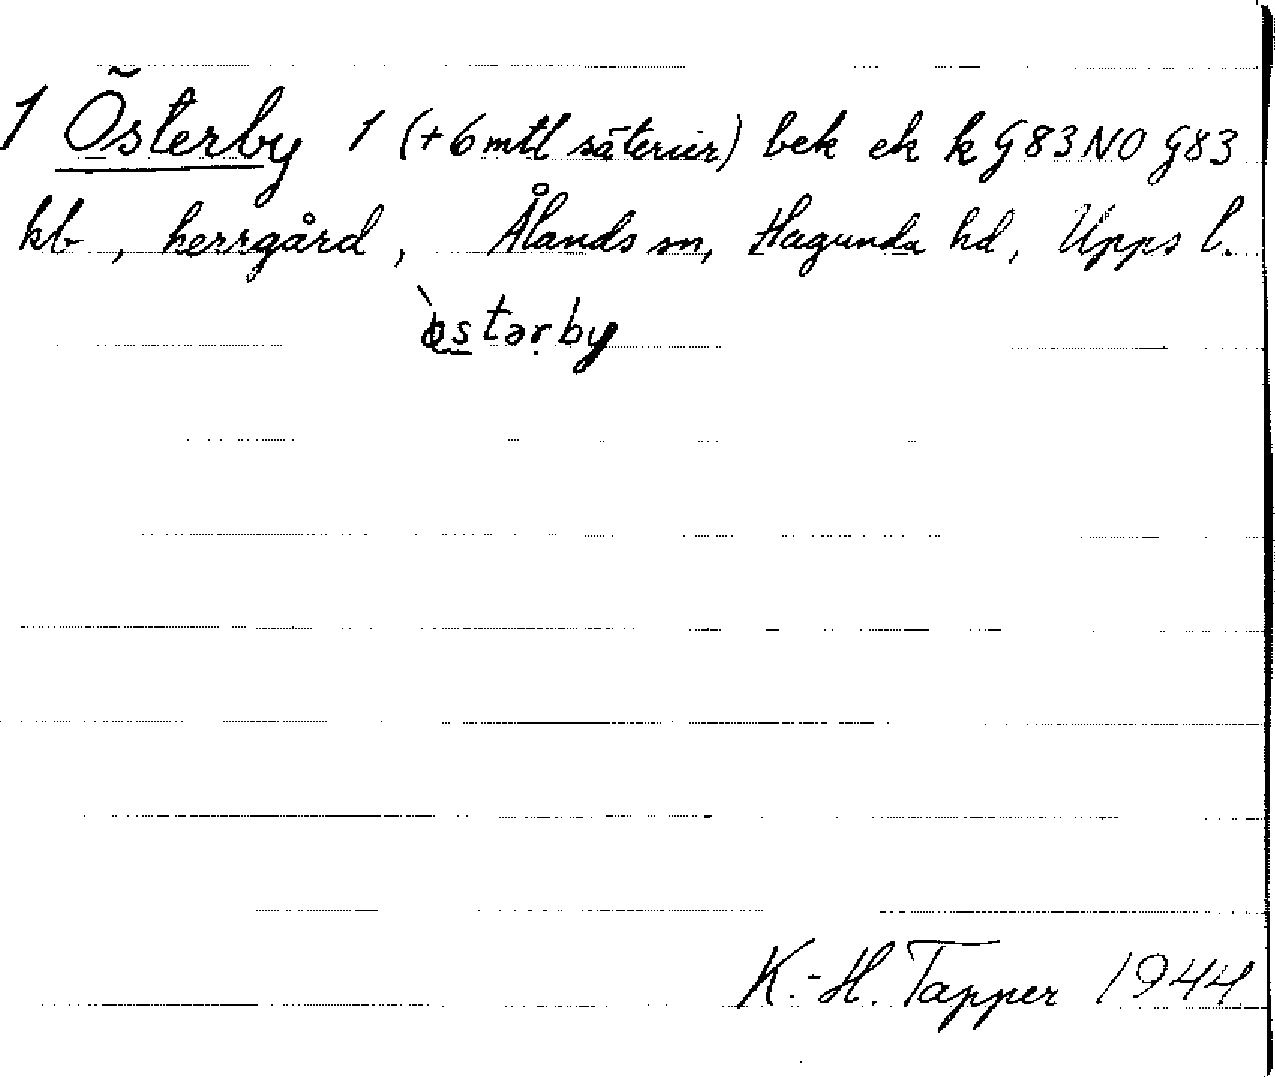 1 Österby 1 (+6 mtl säterier) bek ek k G83NO G83
kb, herrgård, Ålands sn, Hagunda hd, Upps l.
K.-H. Tapper 1944